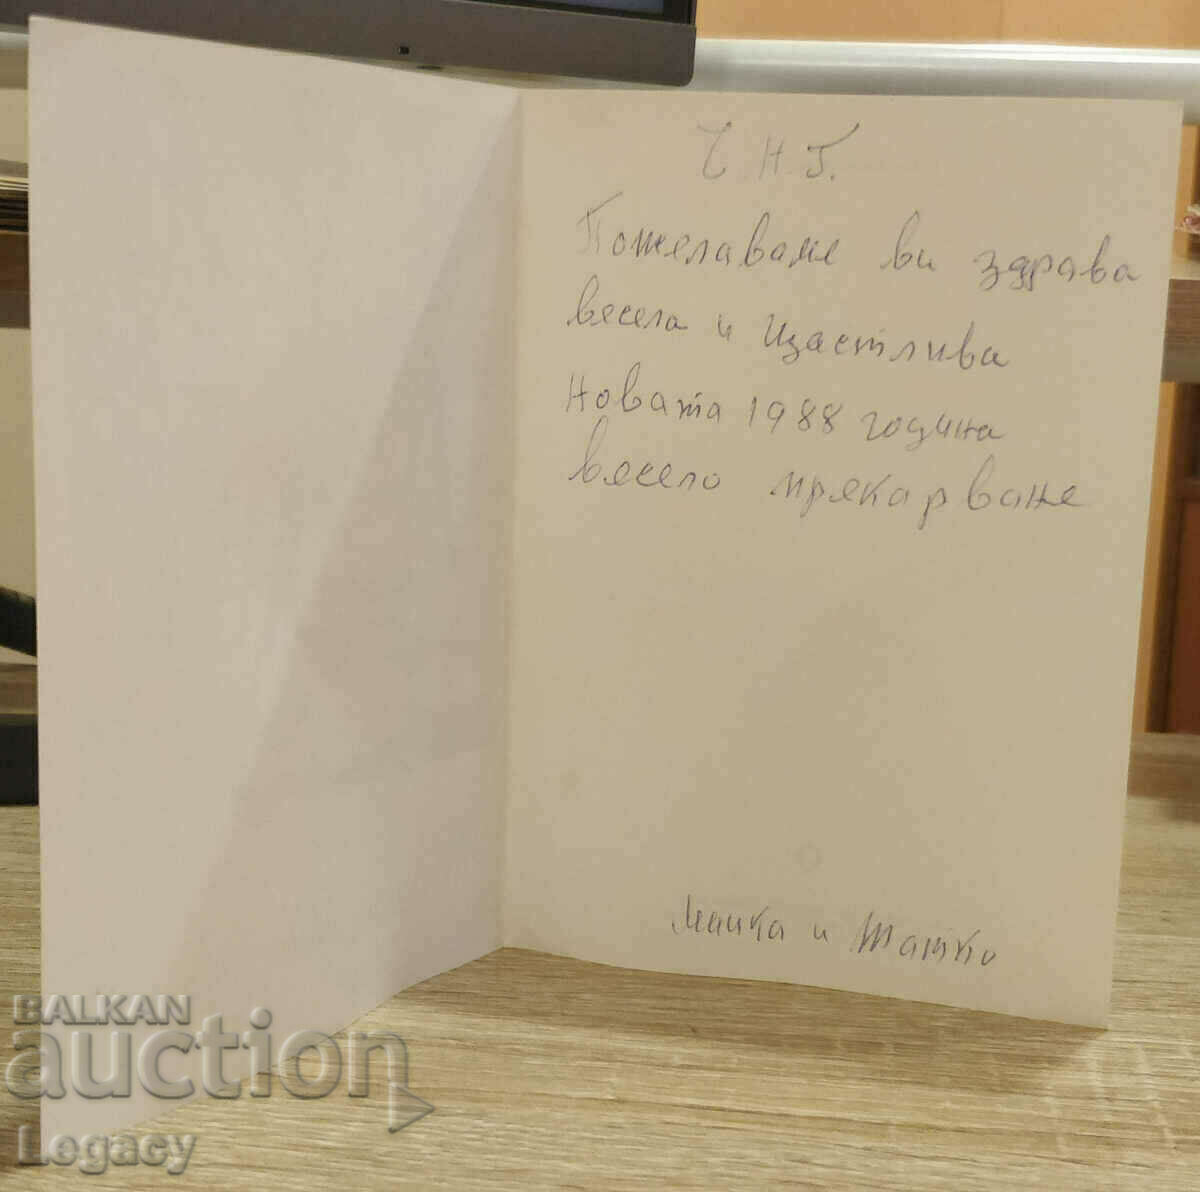 Ч Н Г.
Пожелаваме ви здрава
весела и щастлива
Новата 1988 година
весело прекарване
Майка и Татко
BALKAN
auction
Legacy